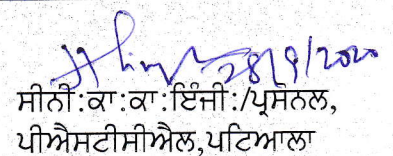 28/9/2020
ਸੀਨੀ:ਕਾ:ਕਾ:ਇੰਜੀ:/ਪ੍ਰਸੋਨਲ,
ਪੀਐਸਟੀਸੀਐਲ,ਪਟਿਆਲਾ